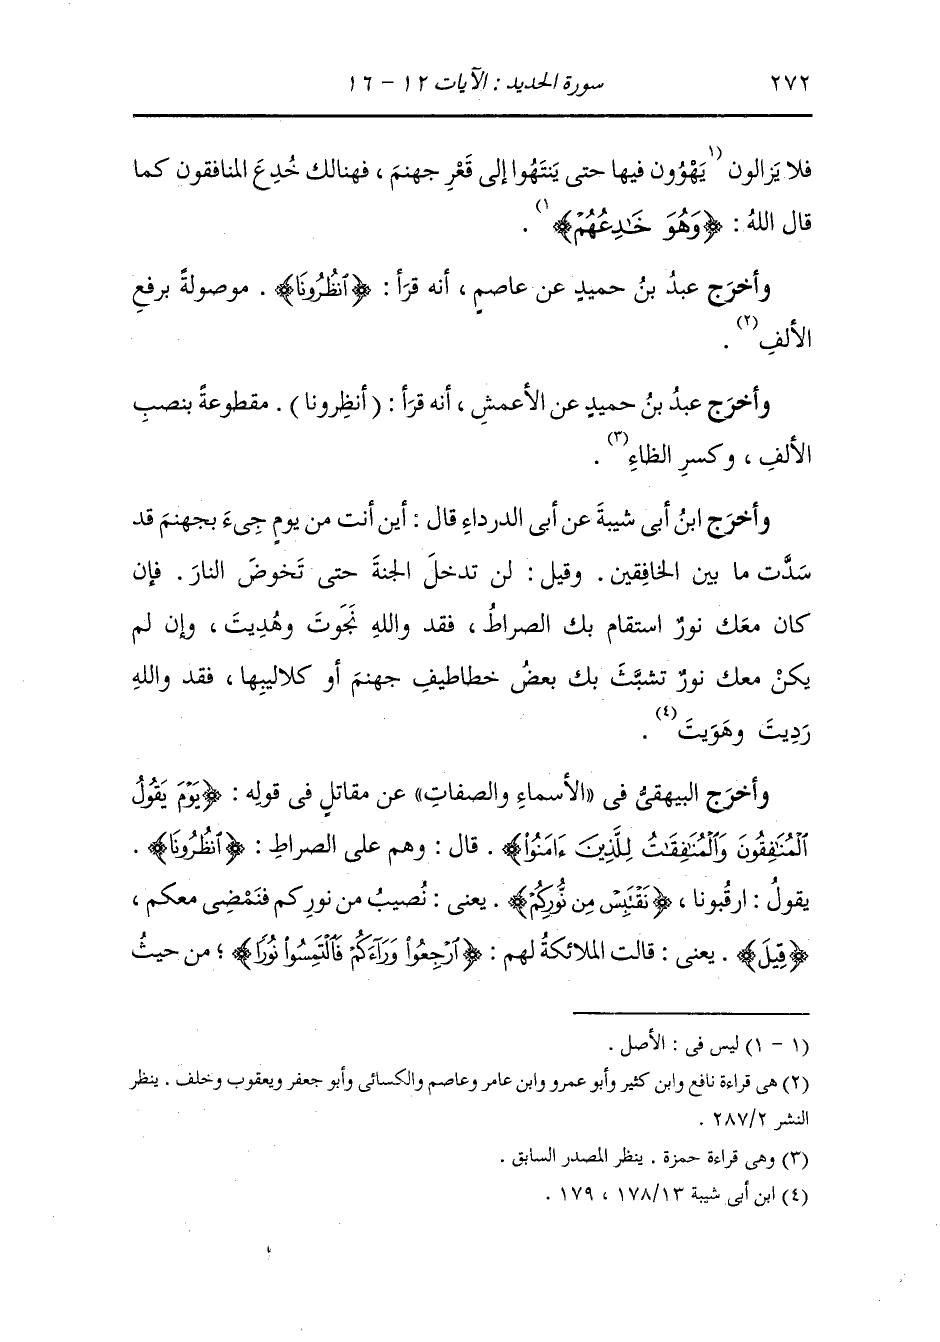 ٢٧٢ سورة الحديد : الآيات ١٢ – ١٦
فلا يَزالون (١يَهْوُون فيها حتى يَنتَهُوا إلى قَعْرِ جهنمَ ، فهنالك خُدِعَ المنافقون كما
قال اللهُ : ﴿وَهُوَ خَٰدِعُهُمْ﴾ ١) .
وأخرَج عبدُ بنُ حميدٍ عن عاصمٍ ، أنه قرَأ : ﴿ٱنظُرُونَا﴾ . موصولةً برفعِ
الألفِ (٢) .
وأخرَج عبدُ بنُ حميدٍ عن الأعمشِ ، أنه قرَأ : ( أنظِرونا ) . مقطوعةً بنصبِ
الألفِ ، وكسرِ الظاءِ (٣) .
وأخرَج ابنُ أبى شيبةَ عن أبى الدرداءِ قال : أين أنت من يومٍ جِىءَ بجهنمَ قد
سَدَّت ما بين الخافِقين . وقيل : لن تدخلَ الجنةَ حتى تَخوضَ النارَ . فإن
كان معَك نورٌ استقام بك الصراطُ ، فقد واللهِ نَجَوتَ وهُديتَ ، وإن لم
يكنْ معك نورٌ تشبَّثَ بك بعضُ خطاطيفِ جهنمَ أو كلاليبِها ، فقد واللهِ
رَدِيتَ وهَوَيتَ (٤) .
وأخرَج البيهقىُّ فى «الأسماءِ والصفاتِ» عن مقاتلٍ فى قولِه : ﴿يَوْمَ يَقُولُ
ٱلْمُنَٰفِقُونَ وَٱلْمُنَٰفِقَٰتُ لِلَّذِينَ ءَامَنُوا۟﴾ . قال : وهم على الصراطِ : ﴿ٱنظُرُونَا﴾ .
يقولُ : ارقُبونا ، ﴿نَقْتَبِسْ مِن نُّورِكُمْ﴾ . يعنى : نُصيبُ من نورِكم فنَمْضِى معكم ،
﴿قِيلَ﴾ . يعنى : قالت الملائكةُ لهم : ﴿ٱرْجِعُوا۟ وَرَآءَكُمْ فَٱلْتَمِسُوا۟ نُورًا﴾ ؛ من حيثُ
(١ – ١) ليس فى : الأصل .
(٢) هى قراءة نافع وابن كثير وأبو عمرو وابن عامر وعاصم والكسائى وأبو جعفر ويعقوب وخلف . ينظر
النشر ٢٨٧/٢ .
(٣) وهى قراءة حمزة . ينظر المصدر السابق .
(٤) ابن أبى شيبة ١٧٨/١٣ ، ١٧٩ .